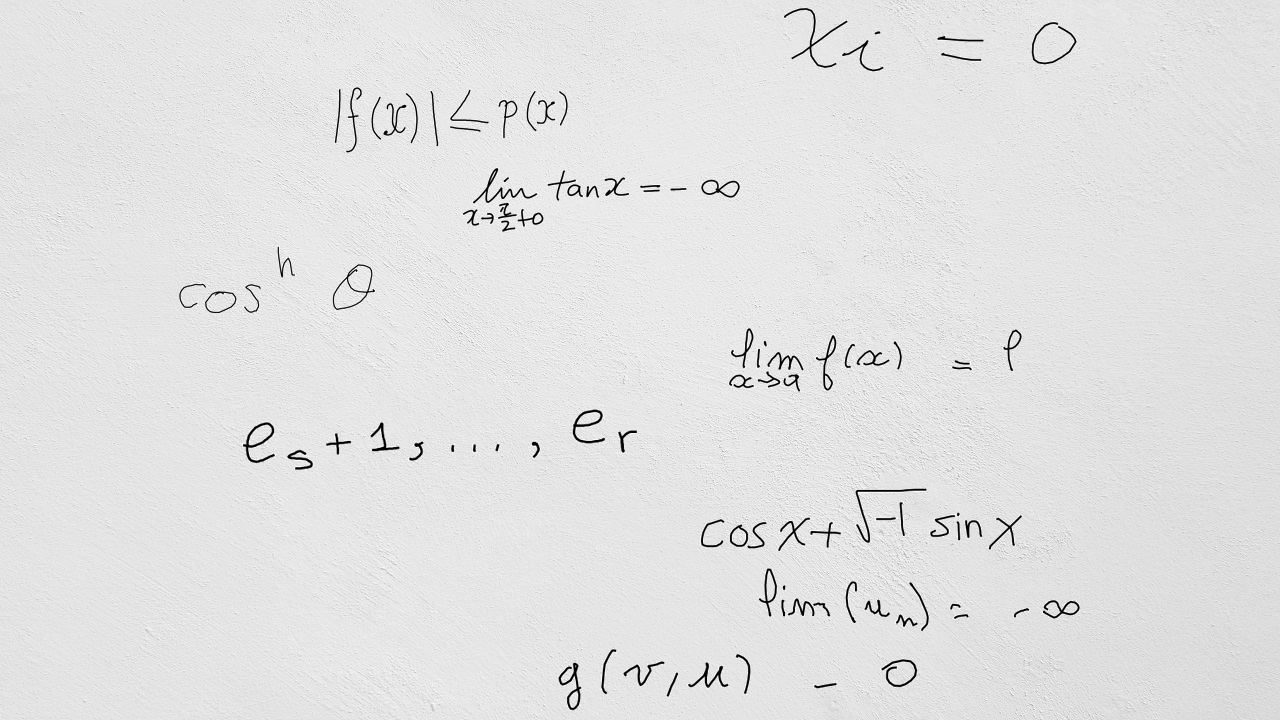 xi = 0
|f(x)| ≤ p(x)
lim_{x→π/2+0} tan x = - ∞
cos^h θ
lim_{x→a} f(x) = l
e_s + 1, ..., e_r
cos x + √-1 sin x
lim (u_n) = - ∞
g(v, u) - 0